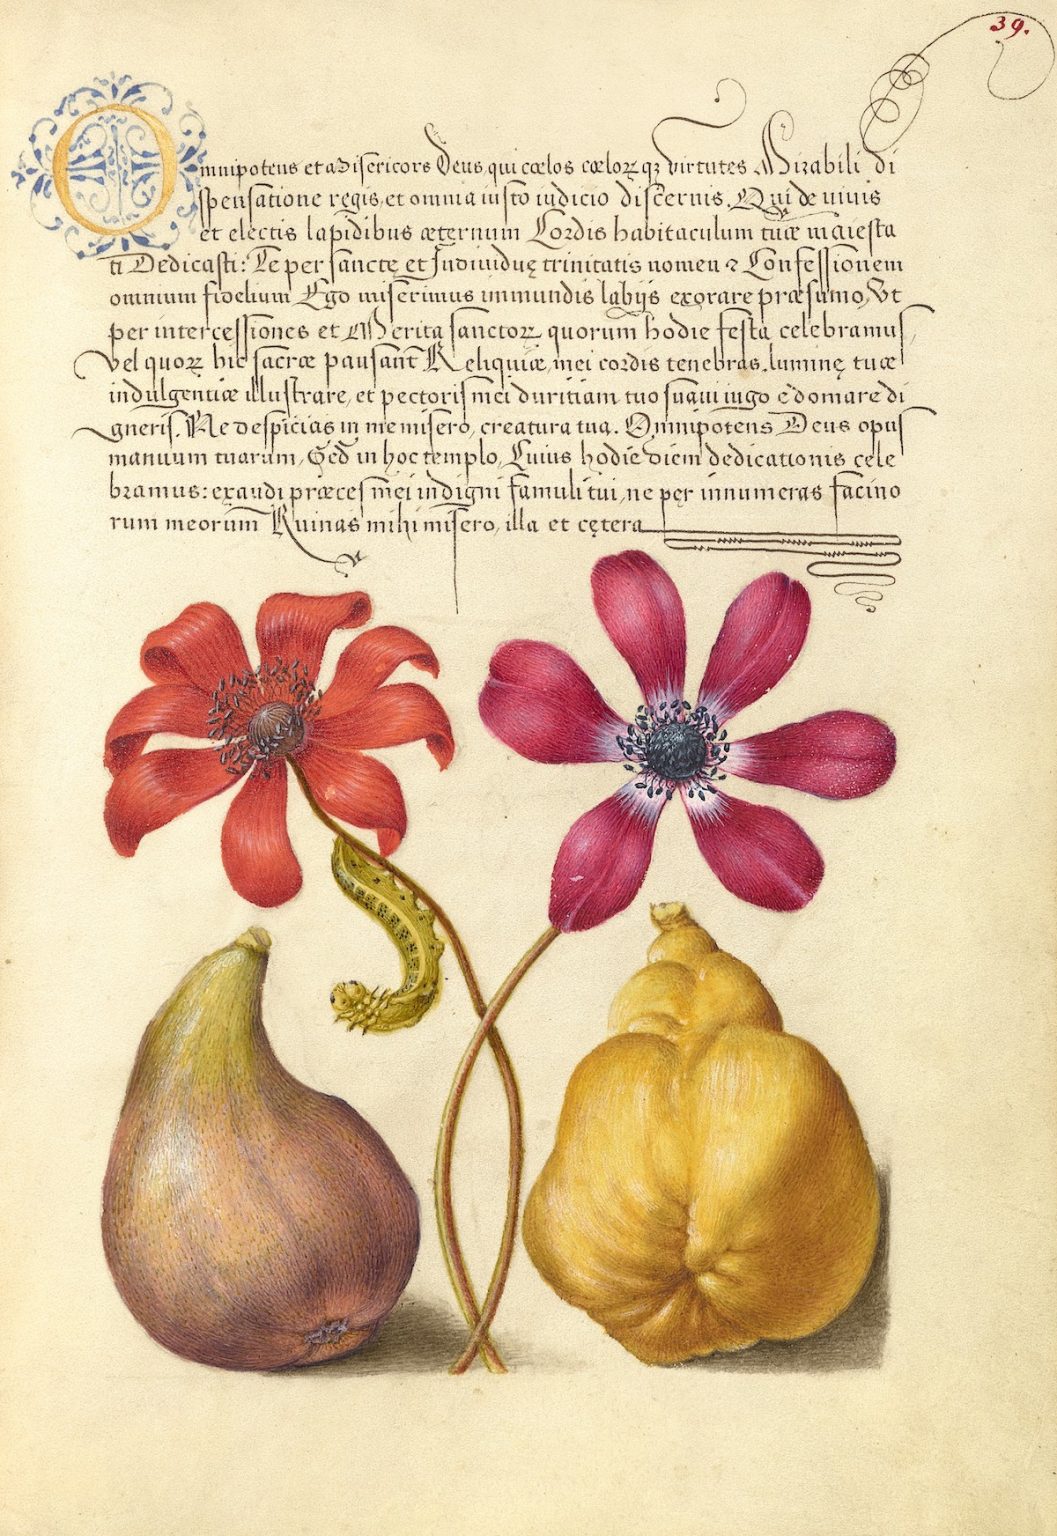 39.
Omnipotens et Misericors Deus, qui cœlos cœloꝝ qꝫ virtutes Mirabili di
spensatione regis, et omnia iusto iudicio discernis. Qui de vivis
et electis lapidibus æternum Cordis habitaculum tuæ maiesta
ti Dedicasti: Te per sanctę et Individuę trinitatis nomen ⁊ Confessionem
omnium fidelium Ego miserimus immundis labijs exorare præsumo, Vt
per intercessiones et Merita sanctoꝝ quorum hodie festa celebramus,
vel quoꝝ hic sacræ pausant Reliquiæ, mei cordis tenebras, luminę tuæ
indulgentiæ illustrare, et pectoris mei duritiam tuo suavi iugo edomare di
gneris. Ne despicias in me misero, creatura tua. Omnipotens Deus opus
manuum tuarum, Sed in hoc templo, Cuius hodie diem dedicationis cele
bramus: exaudi præces mei indigni famuli tui, ne per innumeras facino
rum meorum Ruinas mihi misero, illa et cętera